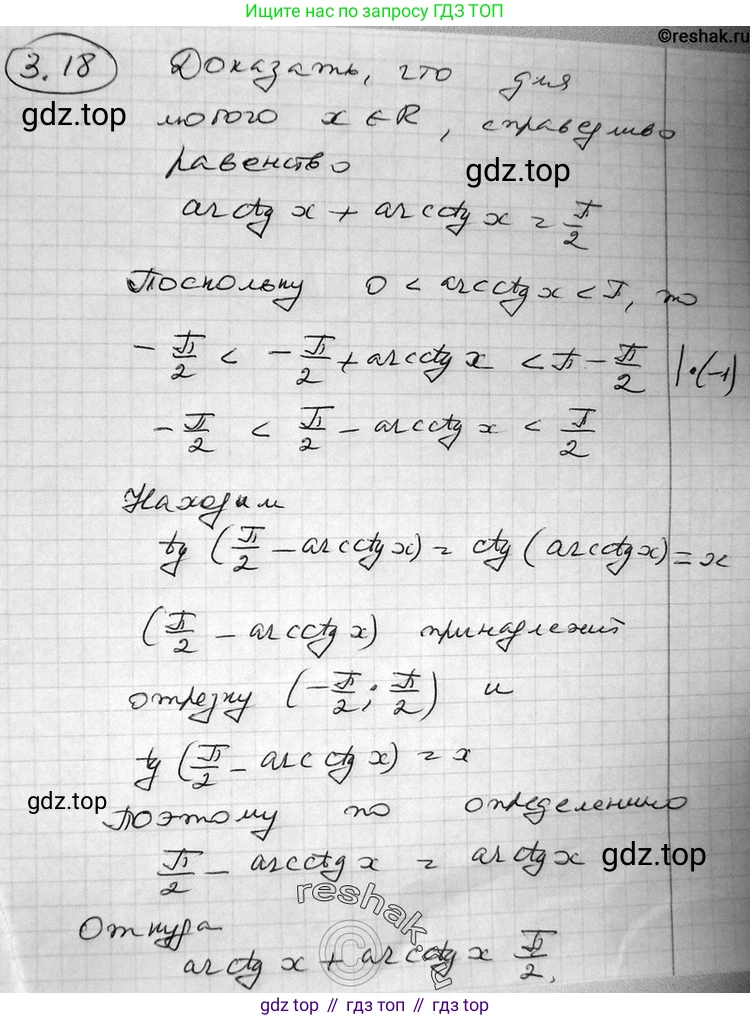 Ищите нас по запросу ГДЗ ТОП
©reshak.ru
3.18 Доказать, что для
gdz.top
любого x ∈ R, справедливо
равенство
gdz.top
arctg x + arcctg x = π/2
Поскольку 0 < arcctg x < π, то
-π/2 < -π/2 + arcctg x < π - π/2 | · (-1)
-π/2 < π/2 - arcctg x < π/2
Находим
tg (π/2 - arcctg x) = ctg (arcctg x) = x
(π/2 - arcctg x) принадлежит
отрезку (-π/2; π/2) и
tg (π/2 - arcctg x) = x
gdz.top
Поэтому по определению
π/2 - arcctg x = arctg x
gdz.top
reshak.ru
©
Откуда
arctg x + arcctg x π/2.
gdz.top // гдз топ // gdz.top